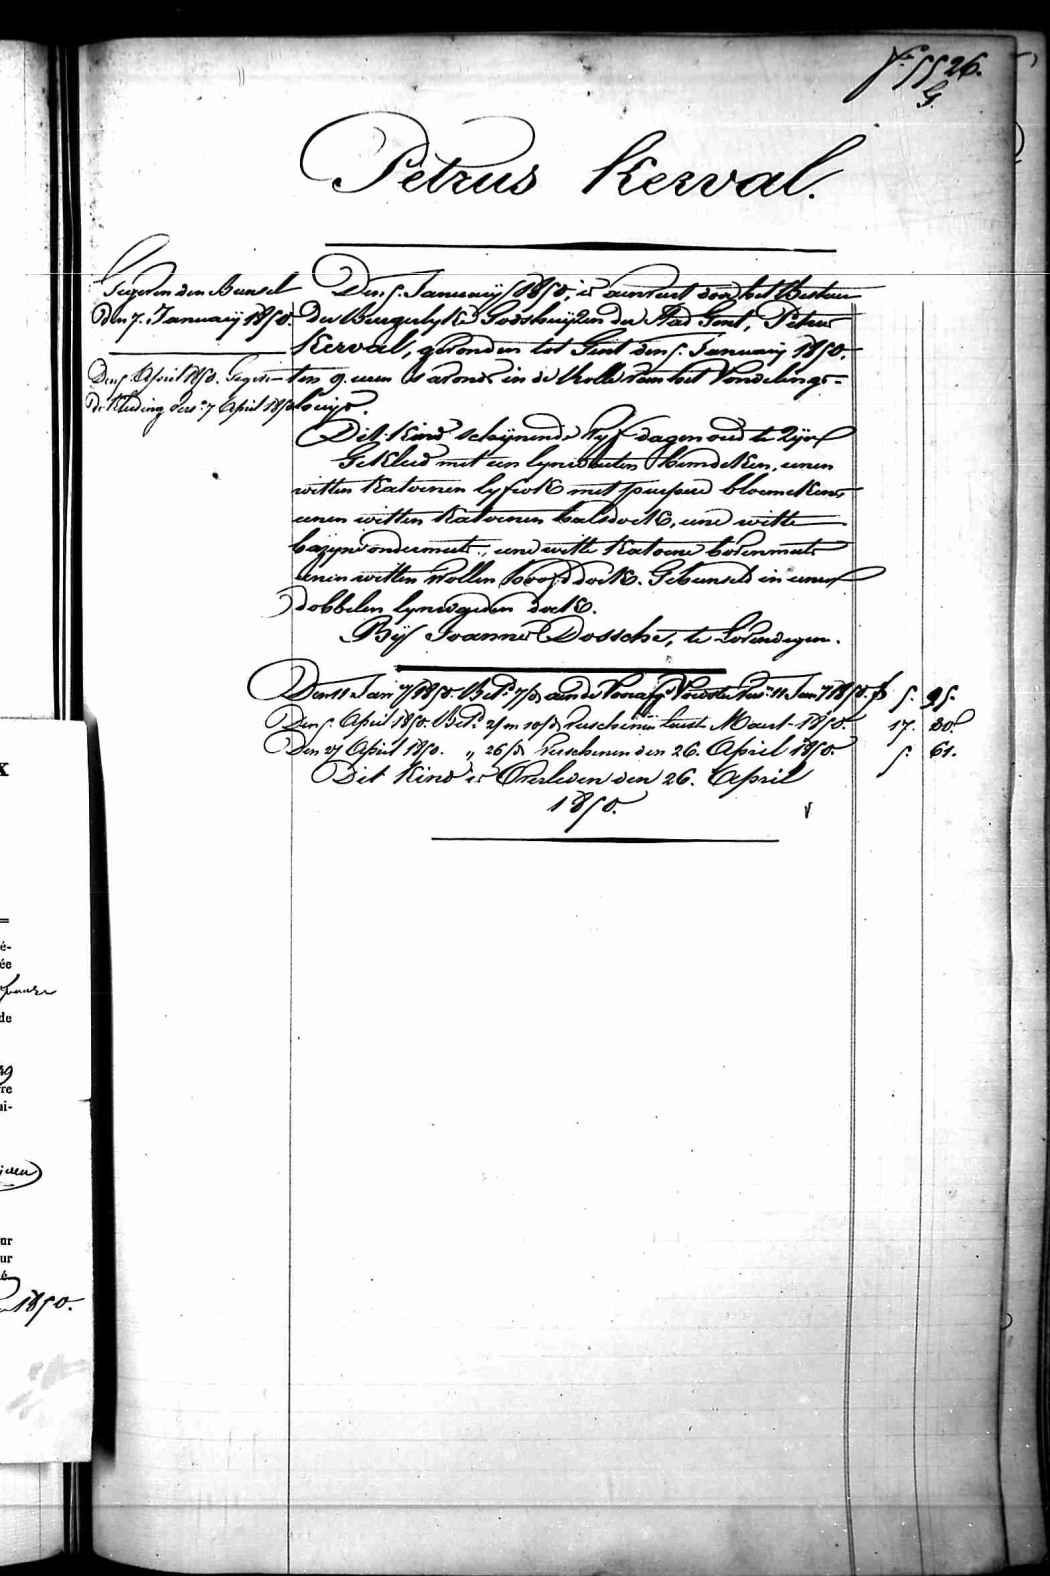 Nº 5526.
G.
Petrus Kerval.
Gegeven den Bunsel
den 7. Januarij 1850.
Den 5. April 1850. Gegeven
de Kleeding vers. 7 April 1850
Den 5. Januarij 1850, is aenveert door het Bestuer
der Burgerlyke Godshuijzen der Stad Gent, Petrus
Kerval, gevonden tot Gent den 5. Januarij 1850.
ten 9. uren 's avonds in de Rolle van het Vondelings-
huijs.
Dit Kind schijnende vyf dagen oud te zijn
Gekleed met een lynwaeten hemdeken, eenen
witten Katoenen lyfrok met purpure bloemekens
eenen witten Katoenen halsdoek, eene witte
bazyne ondermuts, eene witte Katoene bovenmuts
eenen witten wollen hoofddoek. Gebunseld in eenen
dobbelen lynwaeden doek.
Bij Joanne Dossche, te Lovendegem.
Den 11 Jan. 1850. Bet. 7/d aen de Voedster vers. 11 Jan. 1850. f 5. 95.
Den 5. April 1850. Bet. 2/m 10/d verschenen laest Maert 1850. 17. 20.
Den 27 April 1850. „ 26/d verschenen den 26. April 1850. 5. 61.
Dit Kind is Overleden den 26. April
1850.
é-
ée
de
49
re
ai-
ur
ur
é
1850.